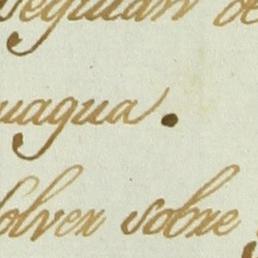 seguian de
uagua.
solver sobre